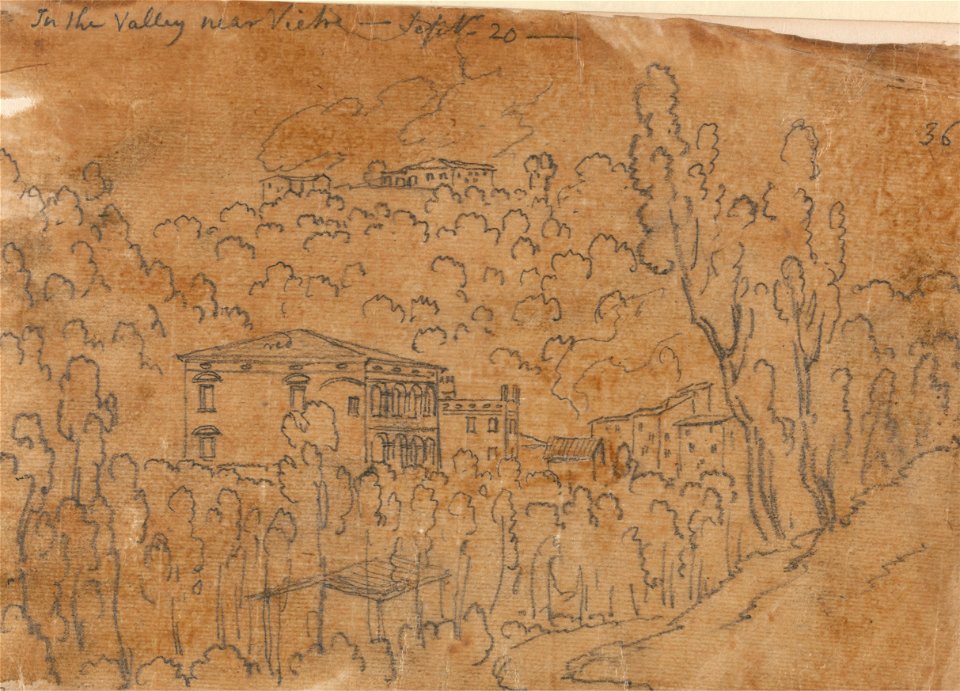 In the Valley near Vietre — Septr 20 —
36
red